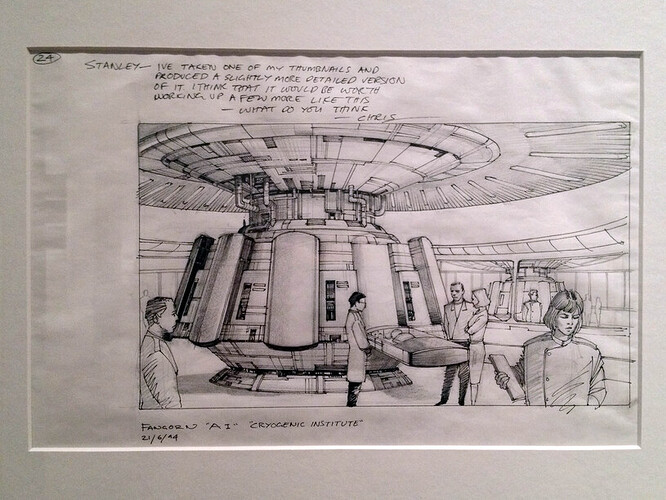 24
STANLEY— IVE TAKEN ONE OF MY THUMBNAILS AND
PRODUCED A SLIGHTLY MORE DETAILED VERSION
OF IT. I THINK THAT IT WOULD BE WORTH
WORKING UP A FEW MORE LIKE THIS
— WHAT DO YOU THINK
— CHRIS
FANGORN "AI" "CRYOGENIC INSTITUTE"
21/6/94